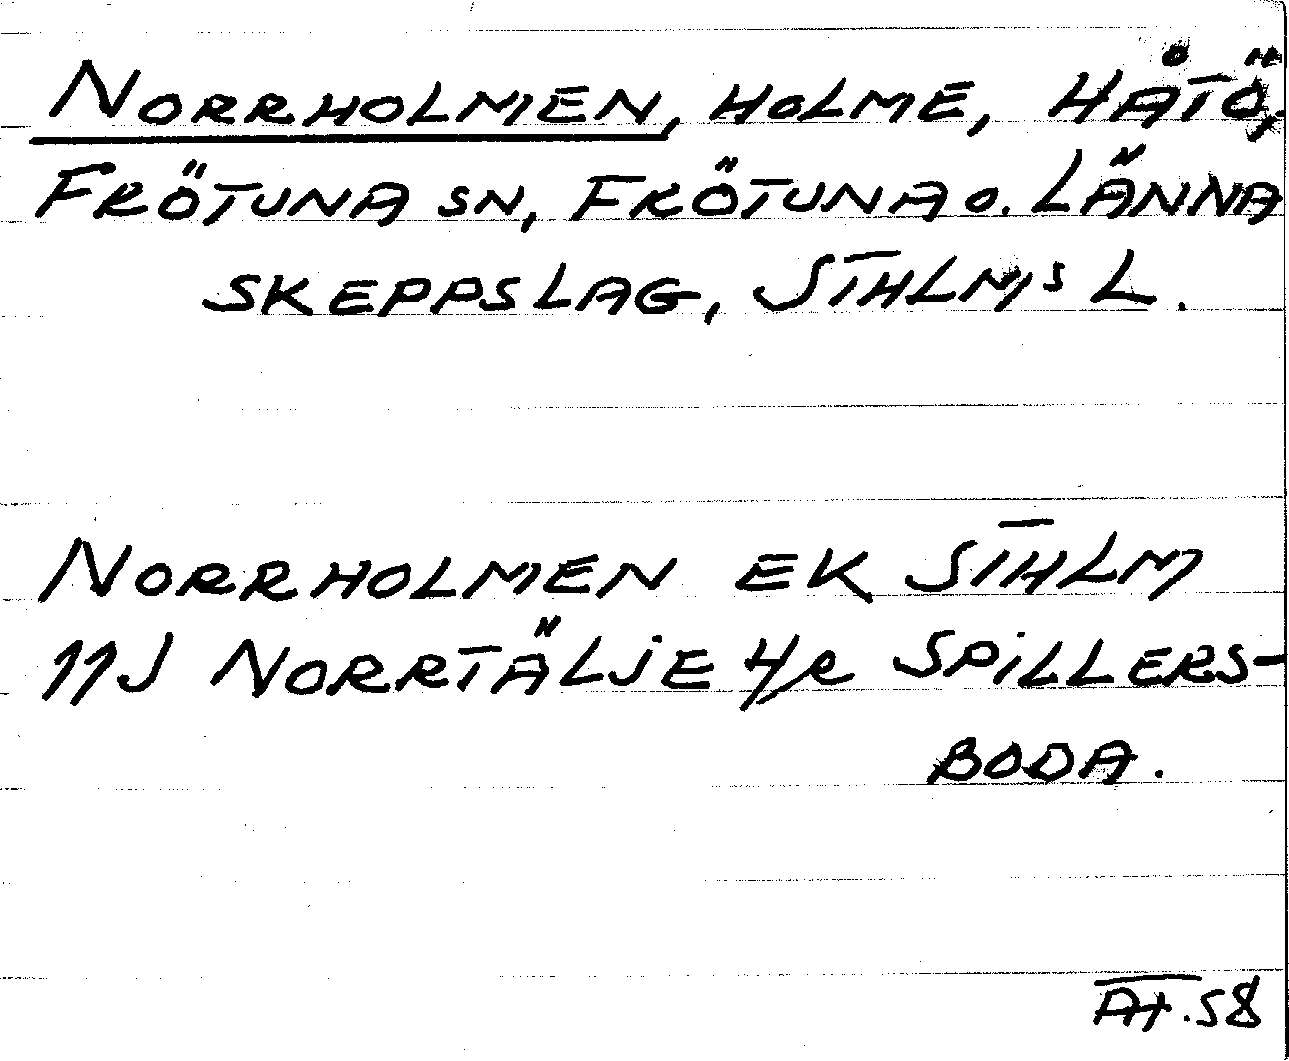 NORRHOLMEN, HOLME, HÅTÖ,
FRÖTUNA SN, FRÖTUNA O. LÄNNA
SKEPPSLAG, STHLMS L.
NORRHOLMEN EK STHLM
11J NORRTÄLJE 4/R SPILLERS-
BODA.
At.58